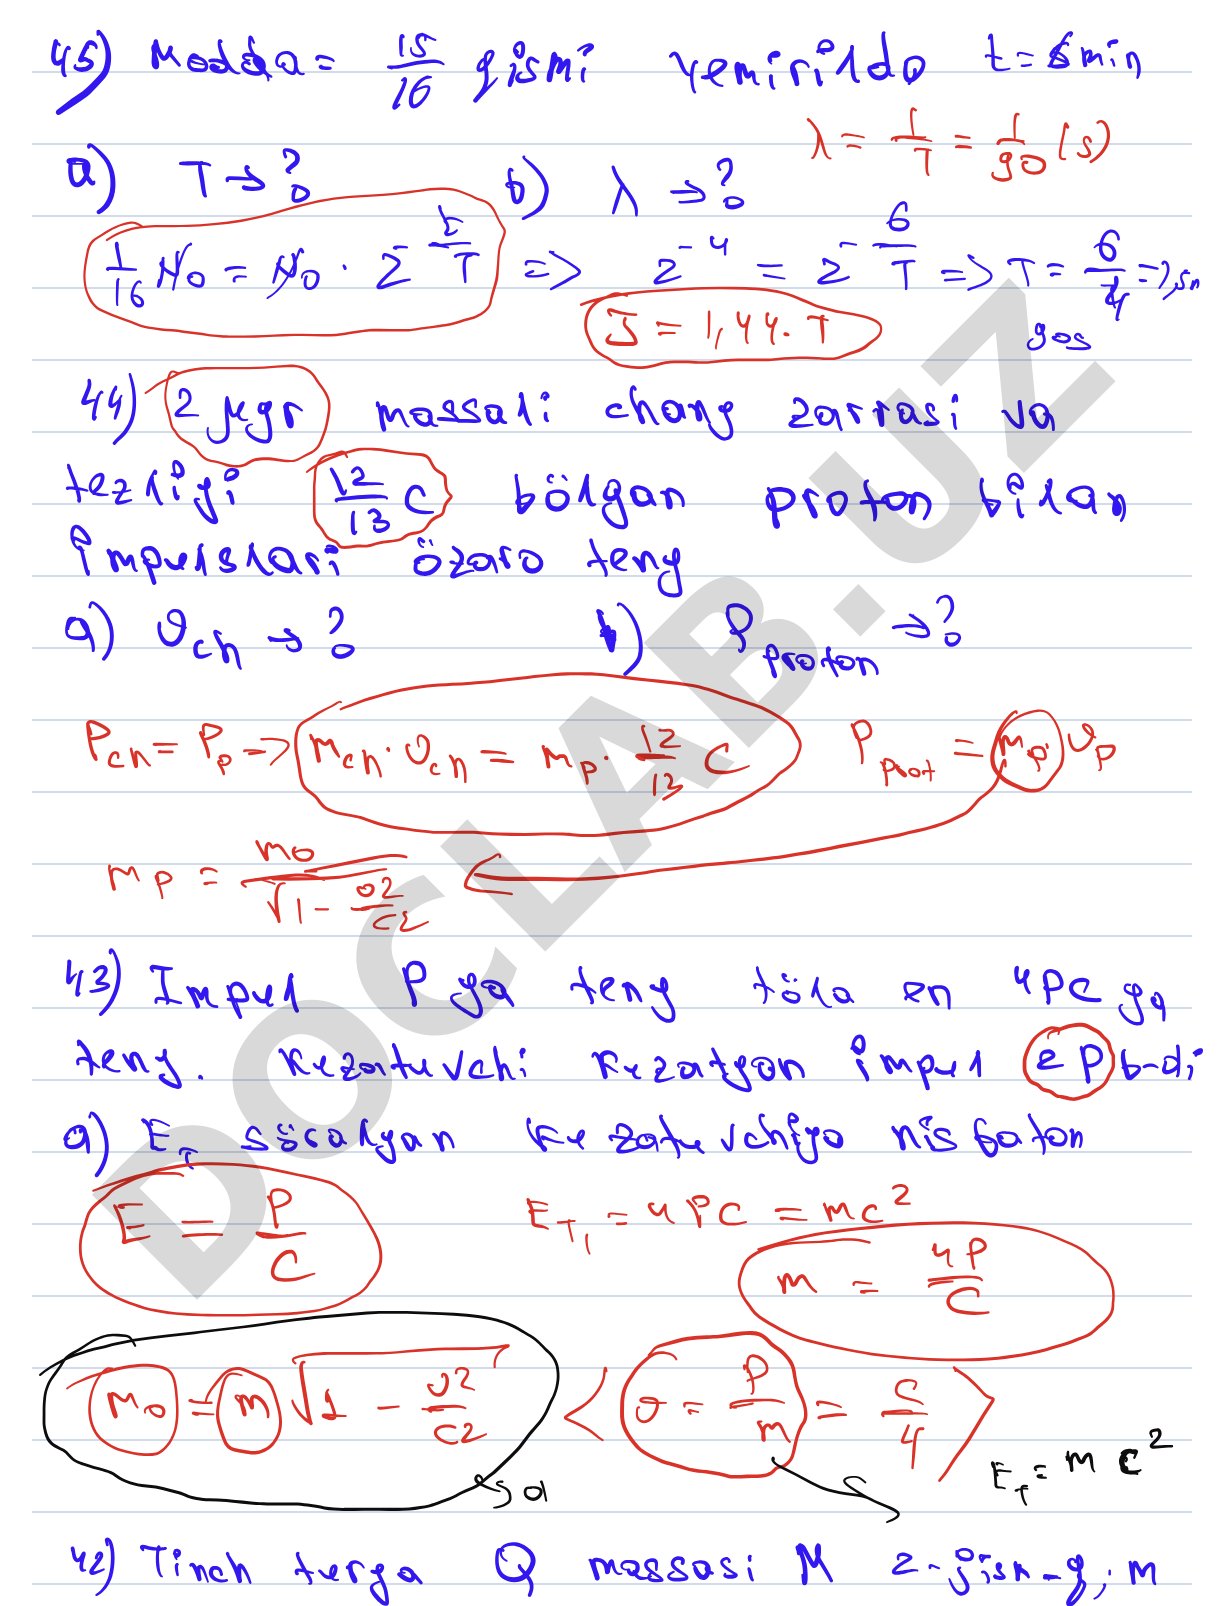 45) Modda = 15/16 qismi yemirildo t = 6 min
λ = 1/T = 1/90 (s)
a) T → ? b) λ → ?
1/16 N₀ = N₀ · 2^(-t/T) => 2^(-4) = 2^(-6/T) => T = 6/4 = 1,5m
J = 1,44 · T 90s
44) 2 μgr massali chang zarrasi va
tezligi 12/13 C bölgan proton bilan
impulslari özaro teng
a) υ_ch → ? b) P_proton → ?
P_ch = P_p → m_ch · υ_ch = m_p · 12/13 C P_prot = m_p · υ_p
m_p = m₀ / √(1 - υ²/c²)
43) Impul P ga teng töla en 4PC ga
teng. Kuzatuvchi kuzatgan impul 2P b-di
a) E_T söralgan kuzatuvchiga nisbatan
E = P/C E_T₁ = 4PC = mc²
m = 4P/C
m₀ = m √(1 - υ²/c²) < υ = P/m = C/4 >
E_T = m c²
42) Tinch turga Q massasi M 2-jism-q, m
DOCLAB.UZ